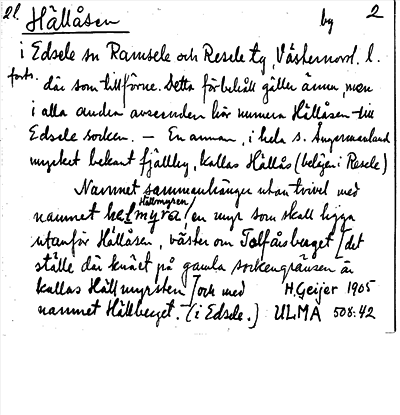 2l. Hällåsen by 2
i Edsele sn Ramsele och Resele tg, Västernorrl. l.
forts. där som tillförne. Detta förbehåll gäller ännu, men
i alla andra avseenden hör numera Hällåsen till
Edsele socken. — En annan, i hela s. Ångermanland
mycket bekant fjällby, kallas Hällås (belägen i Resele)
Namnet sammanhänger utan tvivel med
Hällmyren/
namnet helmyra, en myr som skall ligga
utanför Hällåsen, väster om Tolfåsberget /det
ställe där knäet på gamla sockengränsen är
kallas Hällmyrsten/ och med H. Geijer 1905
namnet Hällberget. (i Edsele.) ULMA 508:42